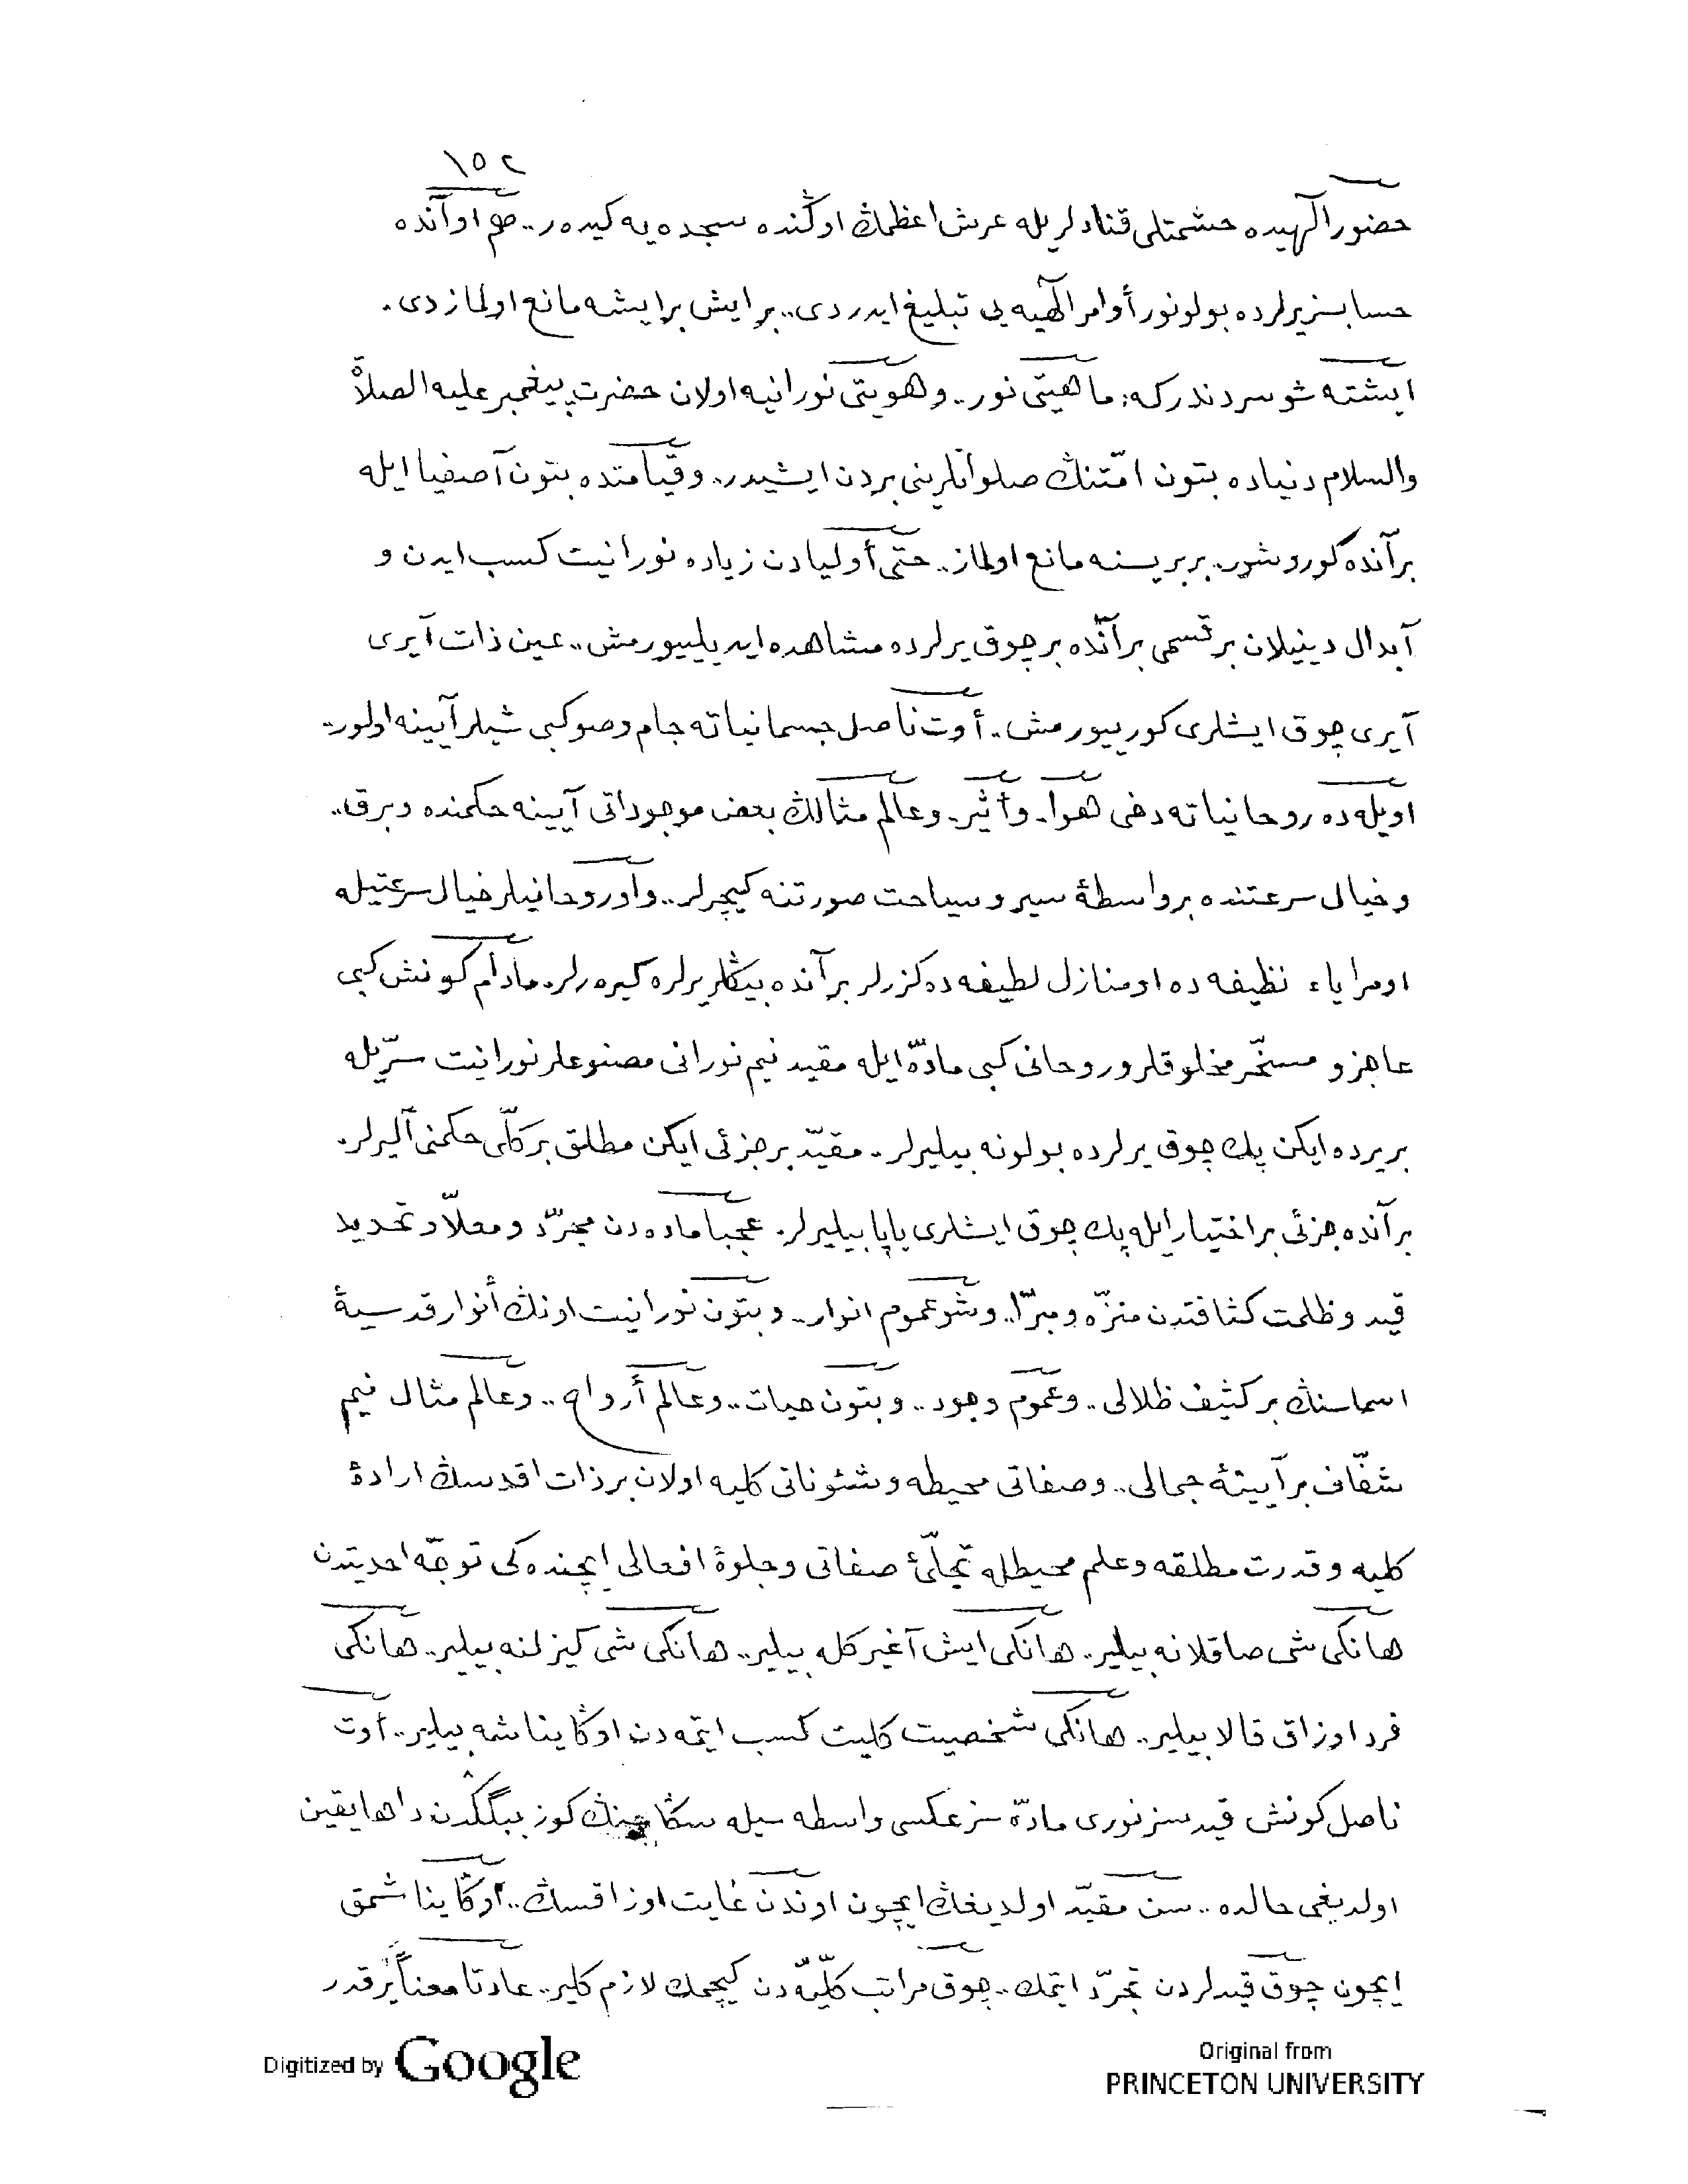 ١٥٢
حضور الٓهیده حشمتلی قنادلریله عرش اعظمڭ اوڭنده سجده‌یه کیده‌ر.. هم او آنده
حسابسز یرلرده بولونور أوامر الٓهیه‌یی تبلیغ ایدردی.. بر ایش بر ایشه مانع اولمازدی.
ایشته شو سردندرکه: ماهیتی نور.. و هویتی نورانیه اولان حضرت پیغمبر علیه الصلاة
والسلام دنیاده بتون امّتنڭ صلواتلرینی بردن ایشیدر.. و قیامتده بتون آصفیا ایله
بر آنده کوروشور. بربریسنه مانع اولماز.. حتّی أولیادن زیاده نورانیت کسب ایدن و
آبدال دینیلان بر قسمی بر آنده بر چوق یرلرده مشاهده ایدیلییورمش.. عین ذات آیری
آیری چوق ایشلری کورییورمش. أوت ناصل جسمانیاته جام وصو کبی شیلر آیینه اولور.
اویله‌ده روحانیاته دخی هوا. و أثیر. و عالم مثالڭ بعض موجوداتی آیینه حکمنده و برق..
و خیال سرعتنده بر واسطهٔ سیر و سیاحت صورتنه کیچرلر.. و او روحانیلر خیال سرعتیله
او مرایاء نظیفه‌ده او منازل لطیفه‌ده کزرلر بر آنده بیڭلر یرلره کیره‌رلر. مادام کونش کبی
عاجز و مسخّر مخلوقلر و روحانی کبی مادّه ایله مقید نیم نورانی مصنوعلر نورانیت سرّیله
بر یرده ایکن پك چوق یرلرده بولونه بیلیرلر. مقیّد بر جزئی ایکن مطلق بر کلّی حکمنی آلیرلر.
بر آنده جزئی بر اختیار ایله پك چوق ایشلری یاپابیلیرلر. عجبا ماده‌دن مجرّد و معلّا و تحدید
قید و ظلمت کثافتدن منزّه و مبرّا.. و شو عموم انوار.. و بتون نورانیت اونڭ أنوار قدسیهٔ
اسماسنڭ بر کثیف ظلالی.. و عموم وجود.. و بتون حیات.. و عالم أرواح.. و عالم مثال نیم
شفّاف بر آیینهٔ جمالی.. و صفاتی محیطه و شئوناتی کلیه اولان بر ذات اقدسڭ ارادهٔ
کلیه و قدرت مطلقه و علم محیطله تجلّئ صفاتی و جلوهٔ افعالی ایچنده‌کی توجّه احدیتدن
هانکی شی صاقلانه بیلیر.. هانکی ایش آغیر کله بیلیر.. هانکی شی کیزلنه بیلیر.. هانکی
فرد اوزاق قالا بیلیر.. هانکی شخصیت کلیت کسب ایتمه‌دن اوڭا یناشه بیلیر.. أوت
ناصل کونش قیدسز نوری مادّه‌سز عکسی واسطه‌سیله سڭا سنڭ کوز ببگڭدن داها یقین
اولدیغی حالده.. سن مقیّد اولدیغڭ ایچون اوندن غایت اوزاقسڭ.. اوڭا یناشمق
ایچون چوق قیدلردن تجرّد ایتمك.. چوق مراتب کلّیّه‌دن کیچمك لازم کلیر.. عادتا معناً یر قدر
Digitized by Google
Original from
PRINCETON UNIVERSITY